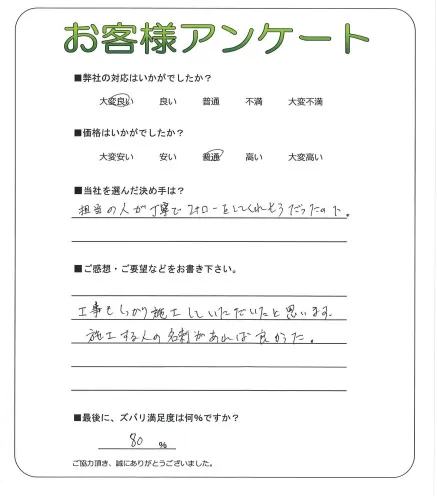 お客様アンケート
■弊社の対応はいかがでしたか？
大変良い 良い 普通 不満 大変不満
■価格はいかがでしたか？
大変安い 安い 普通 高い 大変高い
■当社を選んだ決め手は？
担当の人が丁寧でフォローをしてくれそうだったので。
■ご感想・ご要望などをお書き下さい。
工事もしっかり施工していただいたと思います。
施工する人の名刺があれば良かった。
■最後に、ズバリ満足度は何%ですか？
80 %
ご協力頂き、誠にありがとうございました。